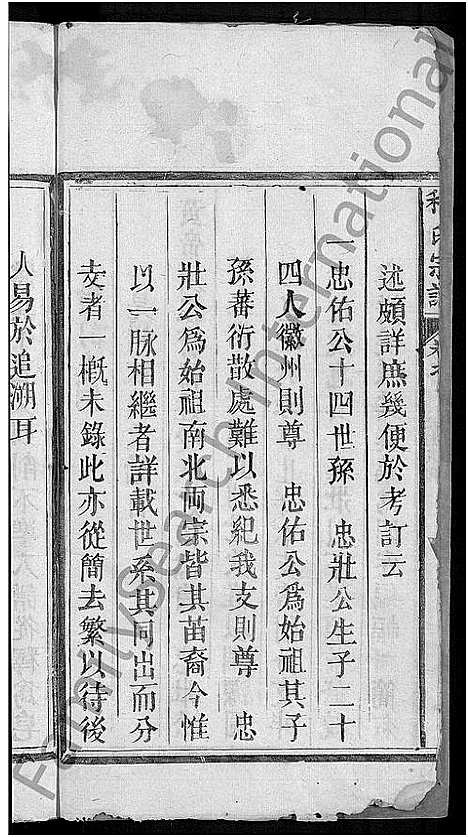 程氏宗譜
述頗詳庶幾便於考訂云
一忠佑公十四世孫　忠壯公生子二十
四人徽州則尊　忠佑公爲始祖其子
孫蕃衍散處難以悉紀我支則尊　忠
壯公爲始祖南北兩宗皆其苗裔今惟
以一脉相繼者詳載世系其同出而分
支者一概未錄此亦從簡去繁以待後
人易於追溯耳
FamilySearch International